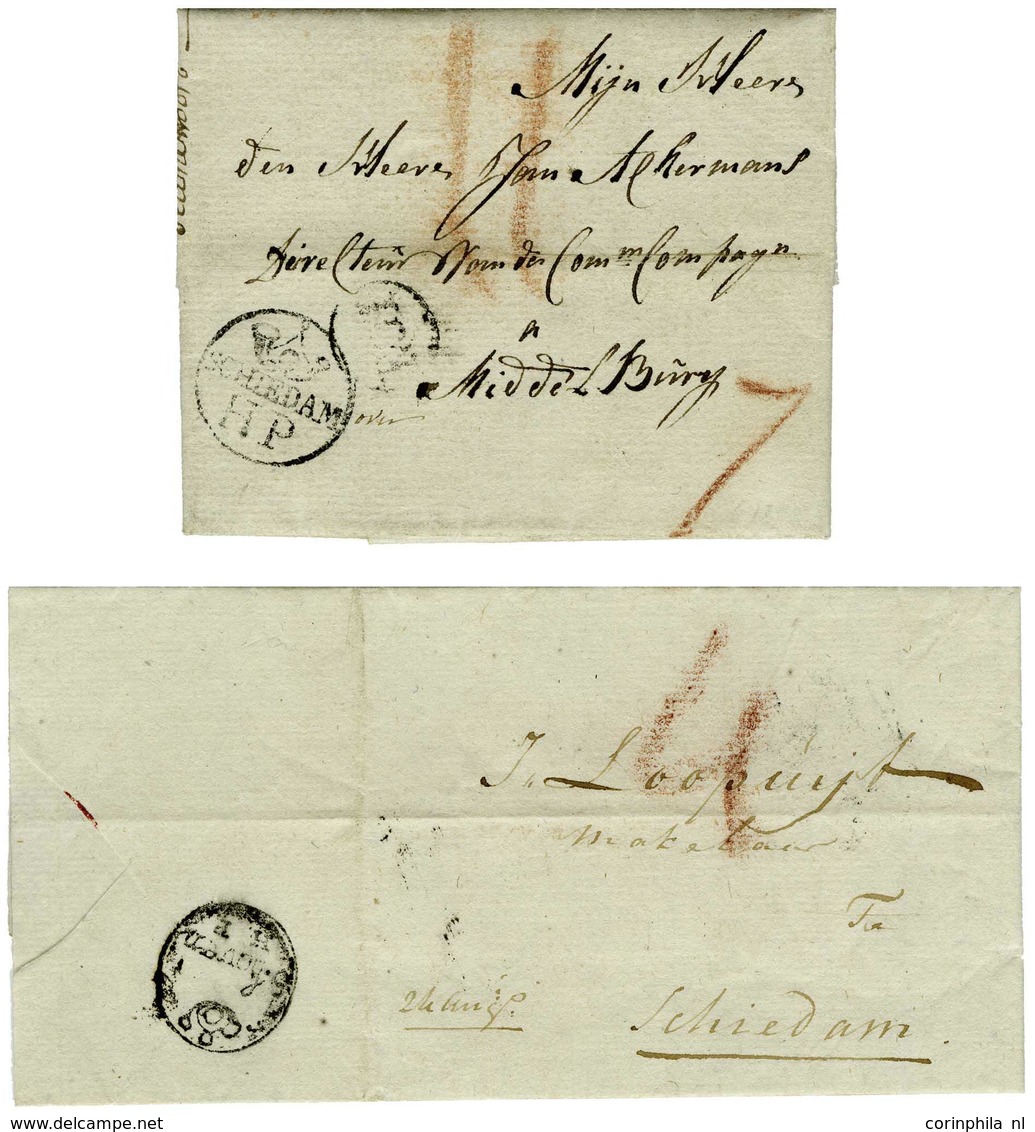 11
Mijn Heere
Den Heere Jan Ackermans
Directeur Van de Com.m Compagn
a
MiddelBúrg
SCHIEDAM
HP
over
7
4
Js. Loopuijt
Makelaar
Te
Schiedam
www.delcampe.net
corinphila nl